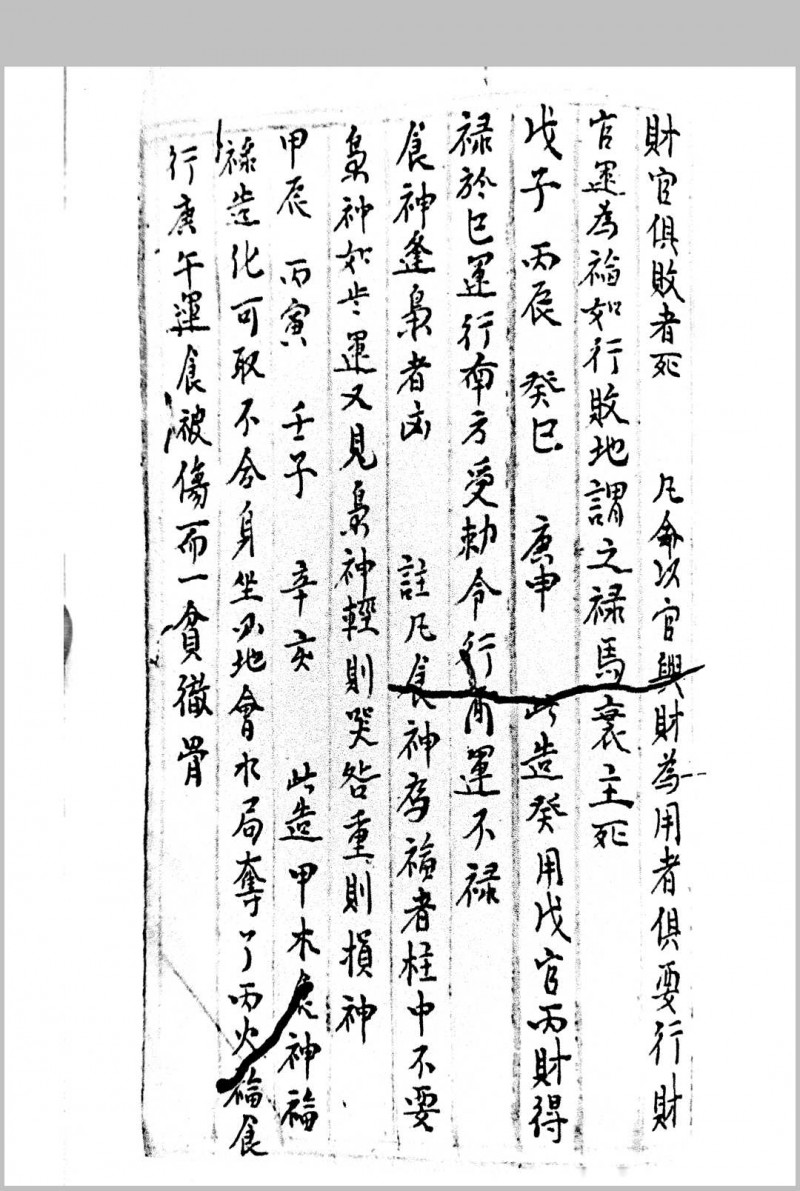 財官俱敗者死　凡命以官與財為用者俱要行財
官運為福如行敗地謂之祿馬衰主死
戊子　丙辰　癸巳　庚申　此造癸用戊官丙財得
祿於巳運行南方受勅令行酉運不祿
食神逢梟者凶　註凡食神為福者柱中不要
梟神如歩運又見梟神輕則哭咎重則損神
甲辰　丙寅　壬子　辛亥　此造甲木食神福
祿造化可取不合身坐水地會水局奪了丙火福食
行庚午運食被傷而一貧徹骨